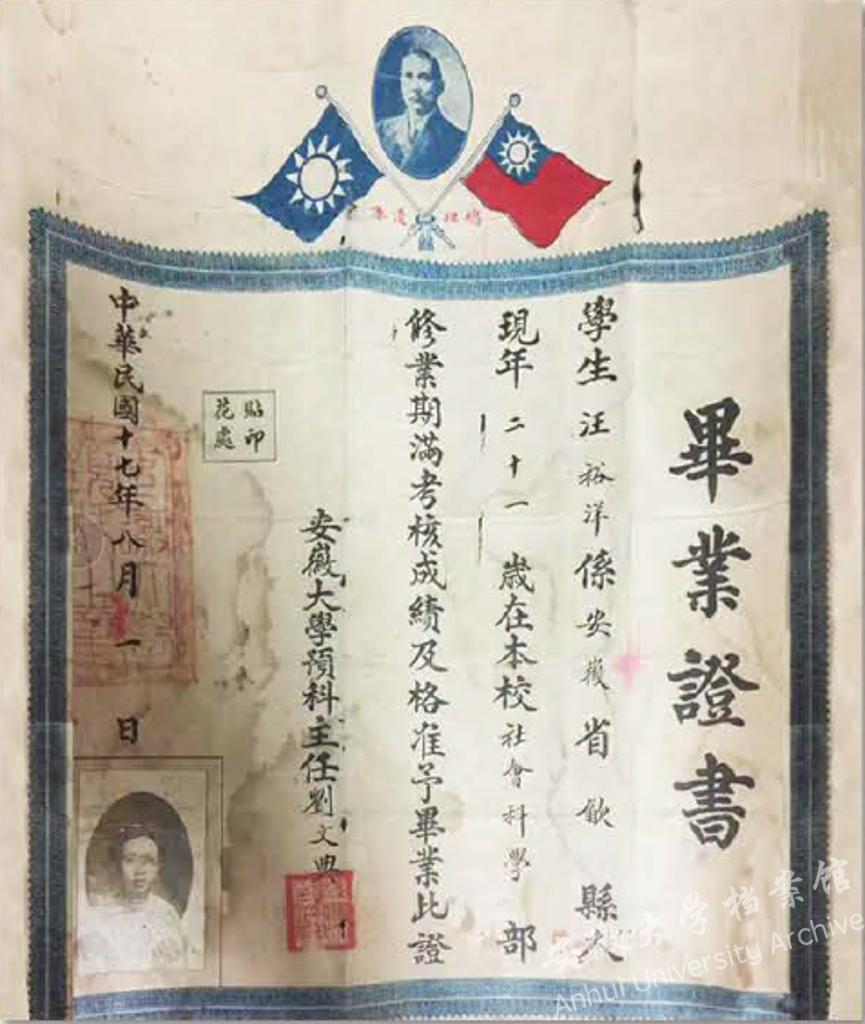 總理遺像
畢業證書
學生汪裕洋係安徽省歙縣人
現年二十一歲在本校社會科學部
修業期滿考核成績及格准予畢業此證
安徽大學預科主任劉文典
貼印
花處
中華民國十七年八月一日
安徽大学档案馆
Anhui University Archive